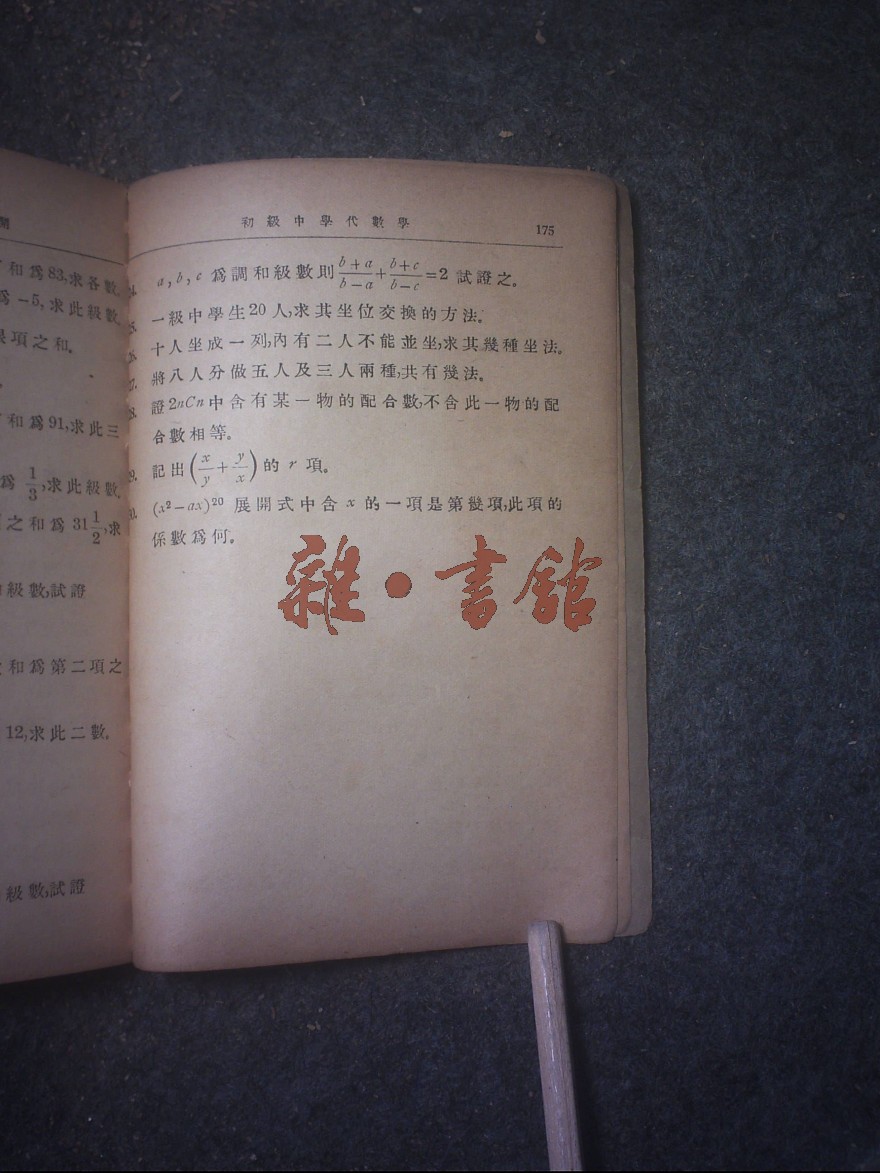 和爲83,求各數。
爲 −5, 求此級數。
項之和。
和爲91,求此三
爲 1/3,求此級數。
之和爲 31 1/2,求
級數,試證
和爲第二項之
12,求此二數。
級數,試證
初級中學代數學 175
24. a, b, c 爲調和級數則 (b+a)/(b−a) + (b+c)/(b−c) =2 試證之。
25. 一級中學生20人,求其坐位交換的方法。
26. 十人坐成一列,內有二人不能並坐,求其幾種坐法。
27. 將八人分做五人及三人兩種,共有幾法。
28. 證2nCn中含有某一物的配合數,不含此一物的配
合數相等。
29. 記出(x/y + y/x)的 r 項。
30. (x²−ax)²⁰ 展開式中含 x 的一項是第幾項,此項的
係數爲何。
雜·書館